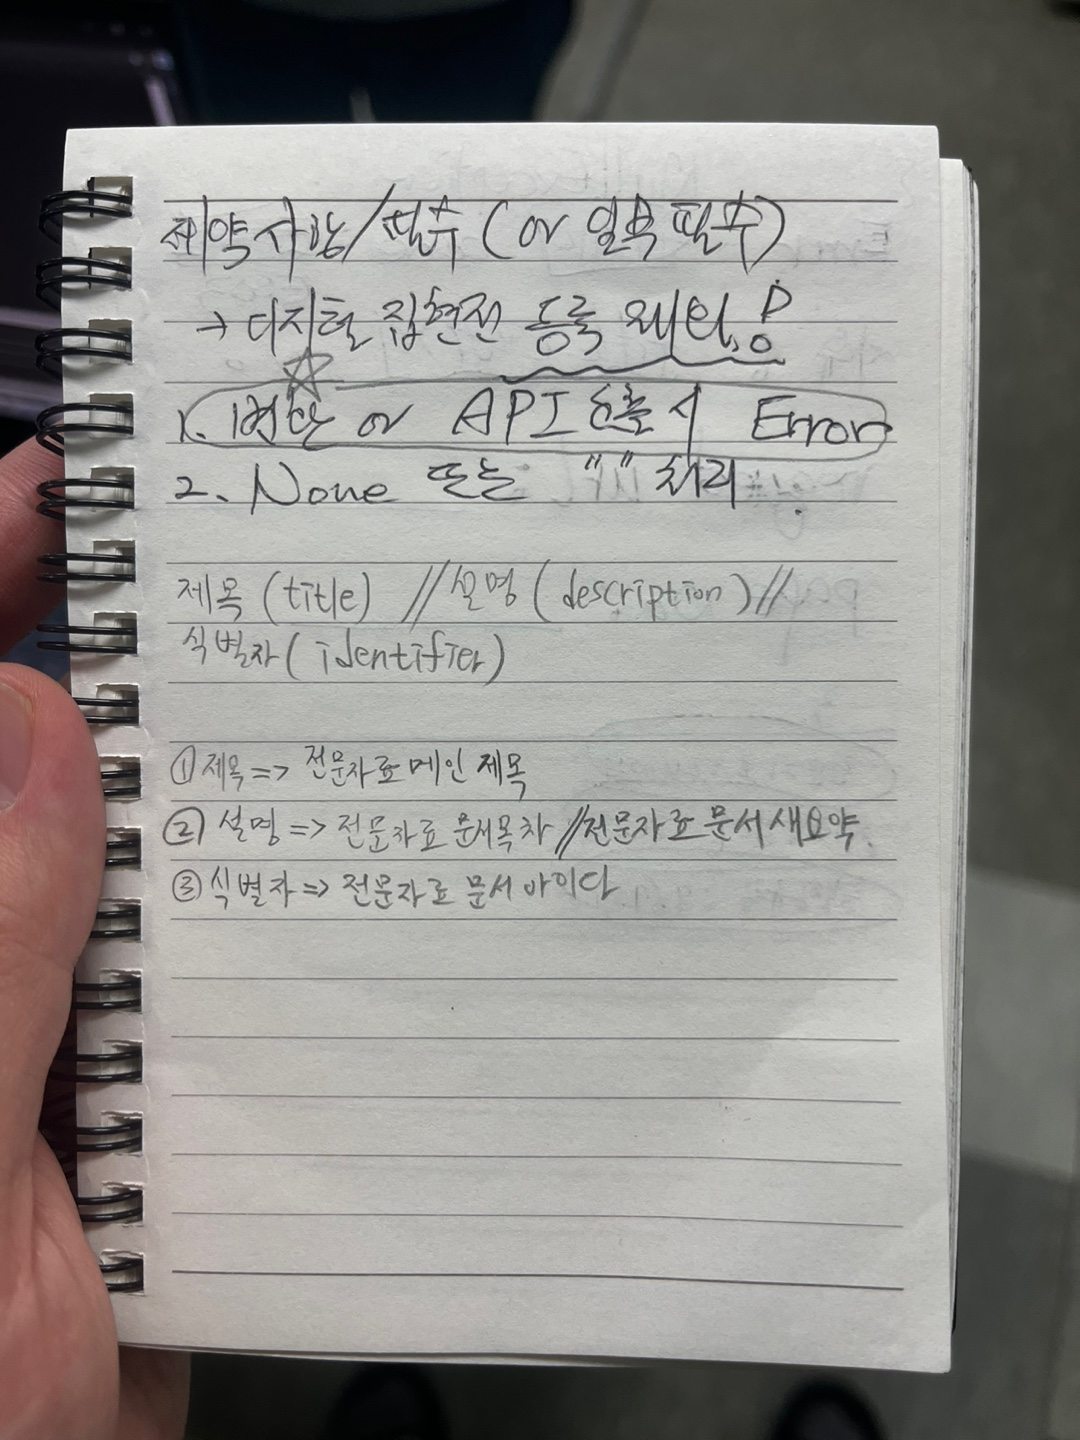 제약사항/필수 (or 일부 필수)
→ 디지털 집현전 등록
1. or API 호출 시 Error
2. None 또는 "" 처리
제목 (title) // 설명 (description) //
식별자 (identifier)
① 제목 => 전문자료 메인 제목
② 설명 => 전문자료 문서목차 // 전문자료 문서 새요약.
③ 식별자 => 전문자료 문서 아이디